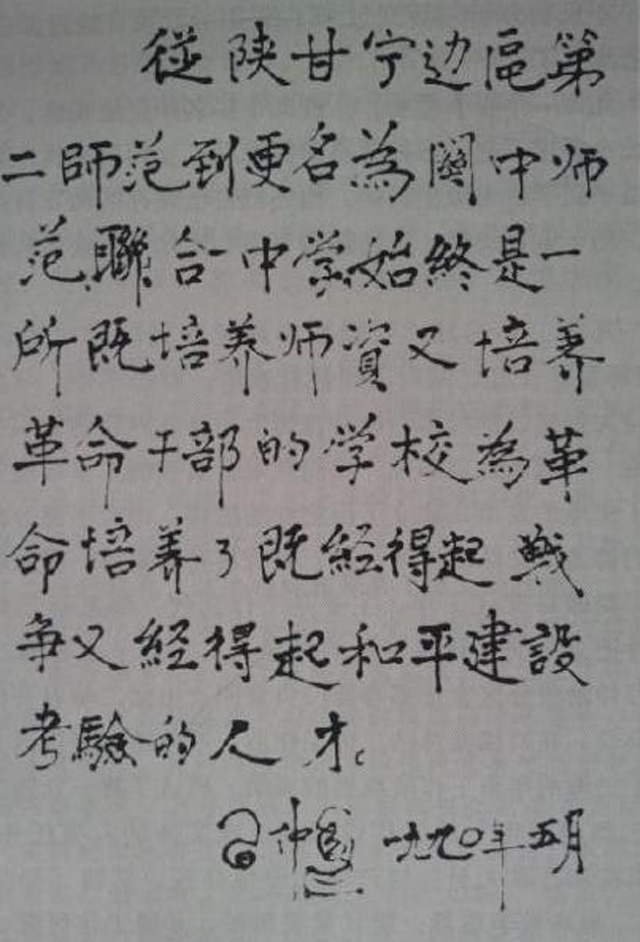 從陕甘宁边區第
二師范到更名為関中师
范聯合中学始終是一
所既培养师資又培养
革命干部的学校為革
命培养了既經得起戰
争又經得起和平建設
考驗的人才。
习仲勋 一九九〇年五月